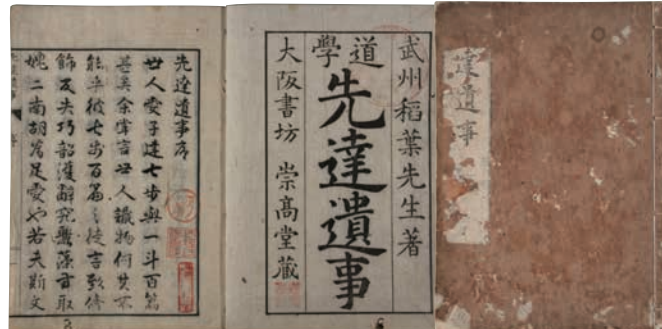 達遺事
武州稻葉先生著
道學
先達遺事
大阪書坊 崇高堂藏
先達遺事序
世人愛子建七步與一斗百篇
甚矣余嘗言世人識物何其不
能乎彼七步百篇之徒言修
飾及夫巧韶濩辭究藻亦取
姚二南胡為足愛也若夫斯文